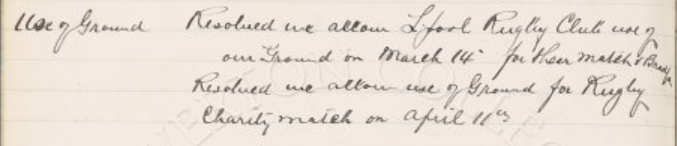 Use of Ground Resolved we allow L'pool Rugby Club use of
our Ground on March 14th for their match v Bradf
Resolved we allow use of Ground for Rugby
Charity match on April 11th